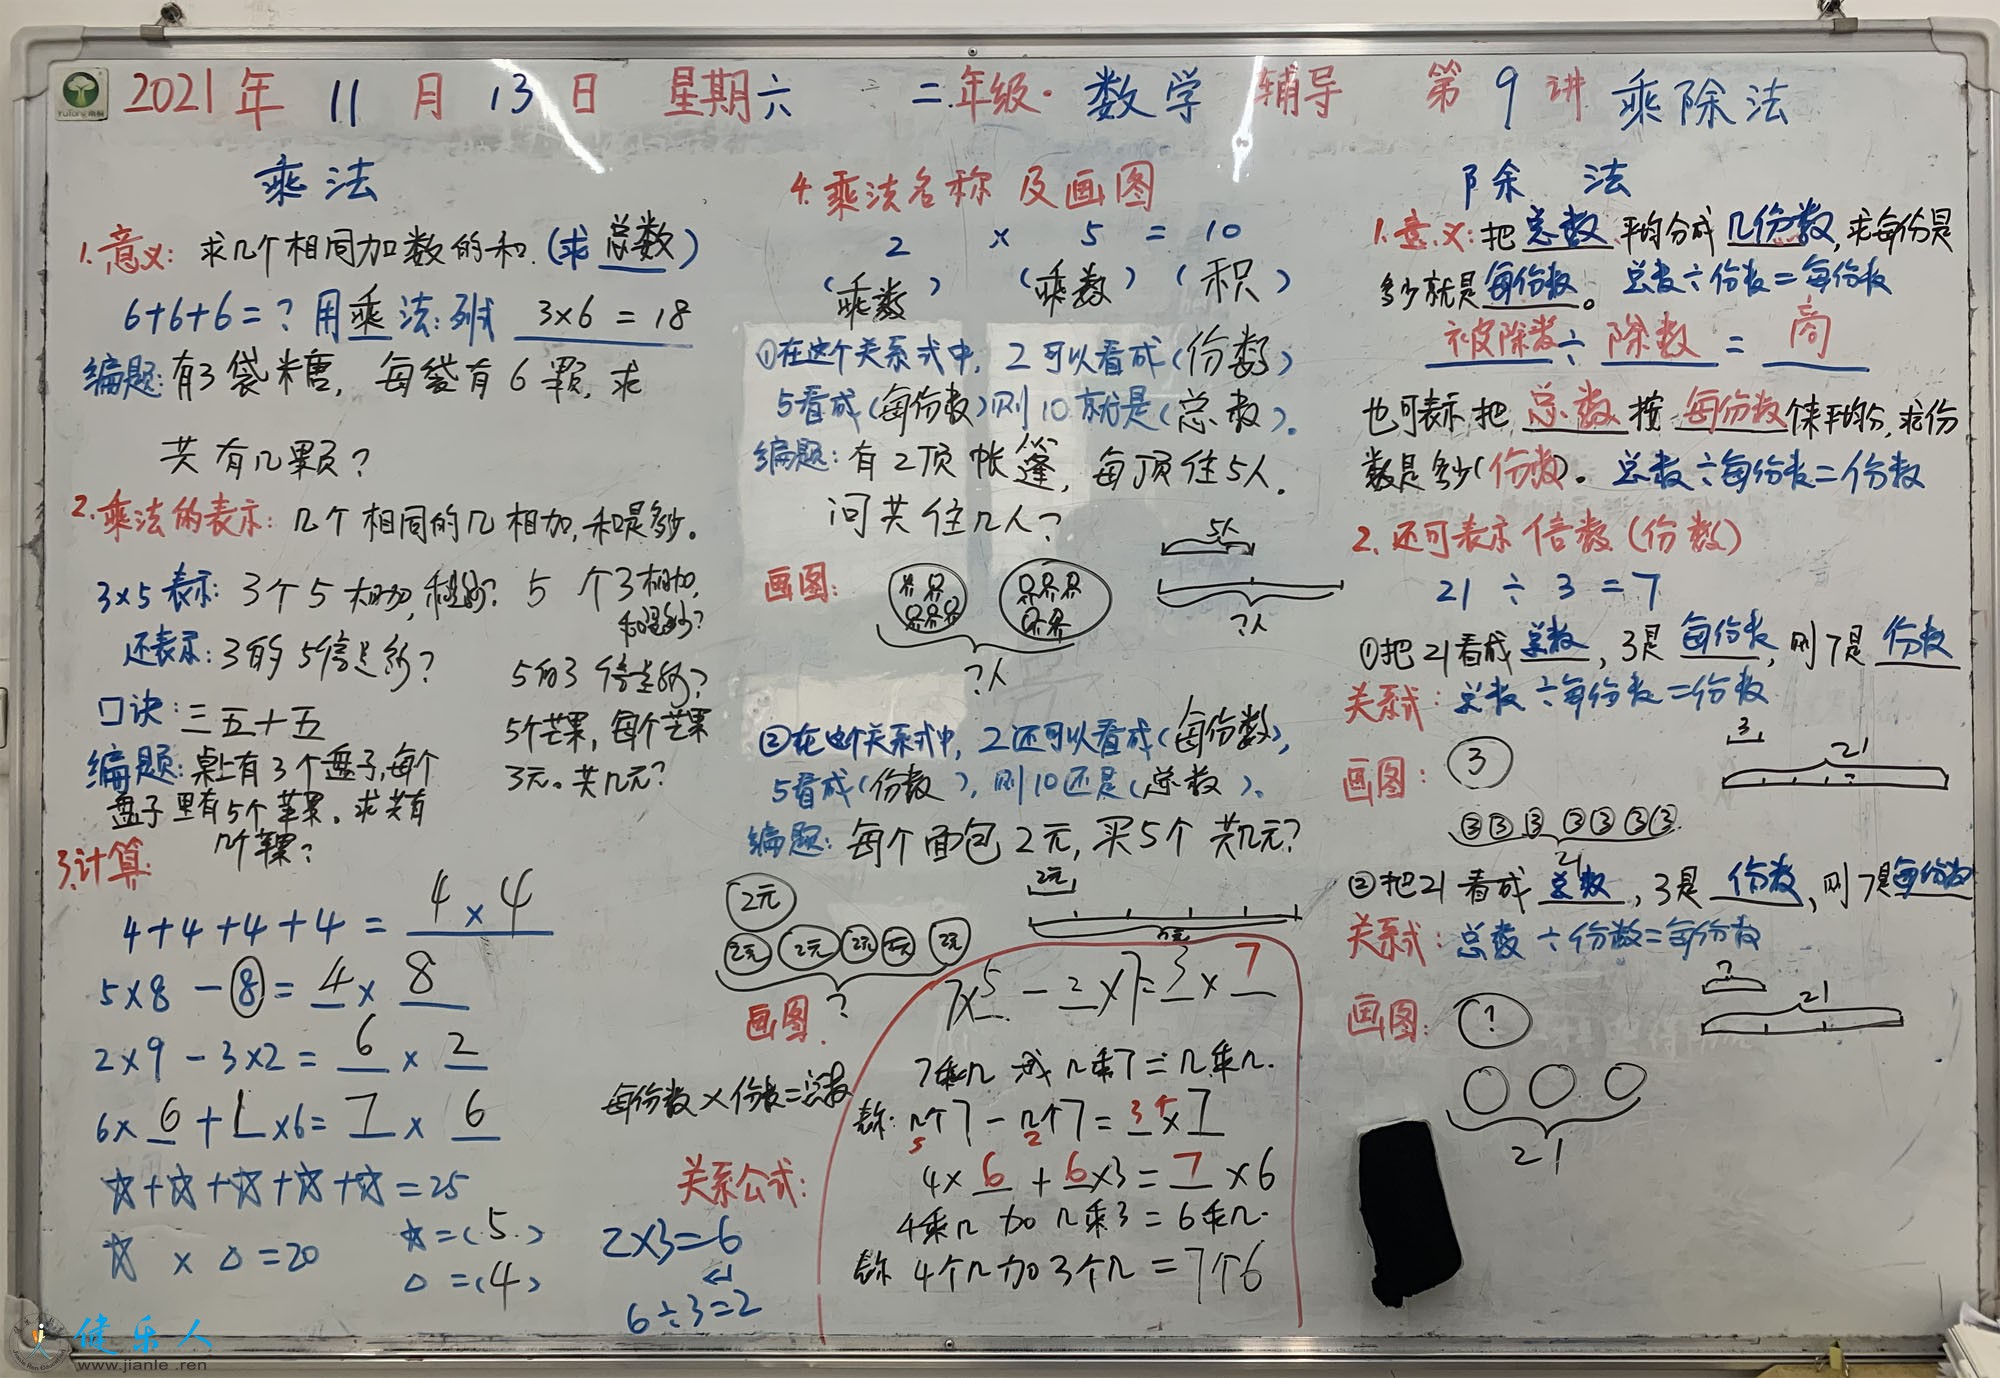 2021年 11月 13日 星期六 二年级·数学 辅导 第9讲 乘除法
乘法
1.意义: 求几个相同加数的和.(求 总数)
6+6+6=? 用乘法:列式 3×6=18
编题:有3袋糖, 每袋有6颗, 求
共有几颗?
2.乘法的表示: 几个相同的几相加,和是多少。
3×5表示: 3个5相加,和是多少? 5个3相加,
和是多少?
还表示:3的5倍是多少? 5的3倍是多少?
口诀:三五十五
5个芒果,每个芒果
3元。共几元?
编题:桌上有3个盘子,每个
盘子里有5个苹果。求共有
几个苹果?
3.计算:
4+4+4+4= 4×4
5×8-⑧=4×8
2×9-3×2=6×2
6×6+1×6=7×6
☆+☆+☆+☆+☆=25
☆×△=20
☆=(5)
△=(4)
4.乘法名称及画图
2 × 5 = 10
(乘数) (乘数) (积)
①在这个关系式中, 2可以看成(份数)
5看成(每份数)则10就是(总数)。
编题:有2顶帐篷, 每顶住5人。
问共住几人?
画图:
5人
?人
?人
②在这个关系式中, 2还可以看成(每份数),
5看成(份数), 则10还是(总数)。
编题:每个面包2元,买5个共几元?
2元
2元
2元 2元 2元 2元 2元
?元
?
画图
每份数×份数=总数
关系公式:
2×3=6
6÷3=2
7×5-2×7=3×7
7乘几或几乘7=几乘几.
表示:几个7-几个7=3个×7
5 2
4×6+6×3=7×6
4乘几加几乘3=6乘几.
表示 4个几加3个几=7个6
除法
1.意义:把总数平均分成几份数,求每份是
多少就是每份数。 总数÷份数=每份数
被除数÷除数=商
也可表示把总数按每份数个来平均分,求份
数是多少(份数)。 总数÷每份数=份数
2.还可表示倍数(份数)
21÷3=7
①把21看成总数, 3是每份数, 则7是份数
关系式:总数÷每份数=份数
画图: 3
3
21
?
3 3 3 3 3 3 3
21
②把21看成总数, 3是份数, 则7是每份数
关系式:总数÷份数=每份数
画图: ?
?
21
21
Yutong
健乐人
www.jianle.ren